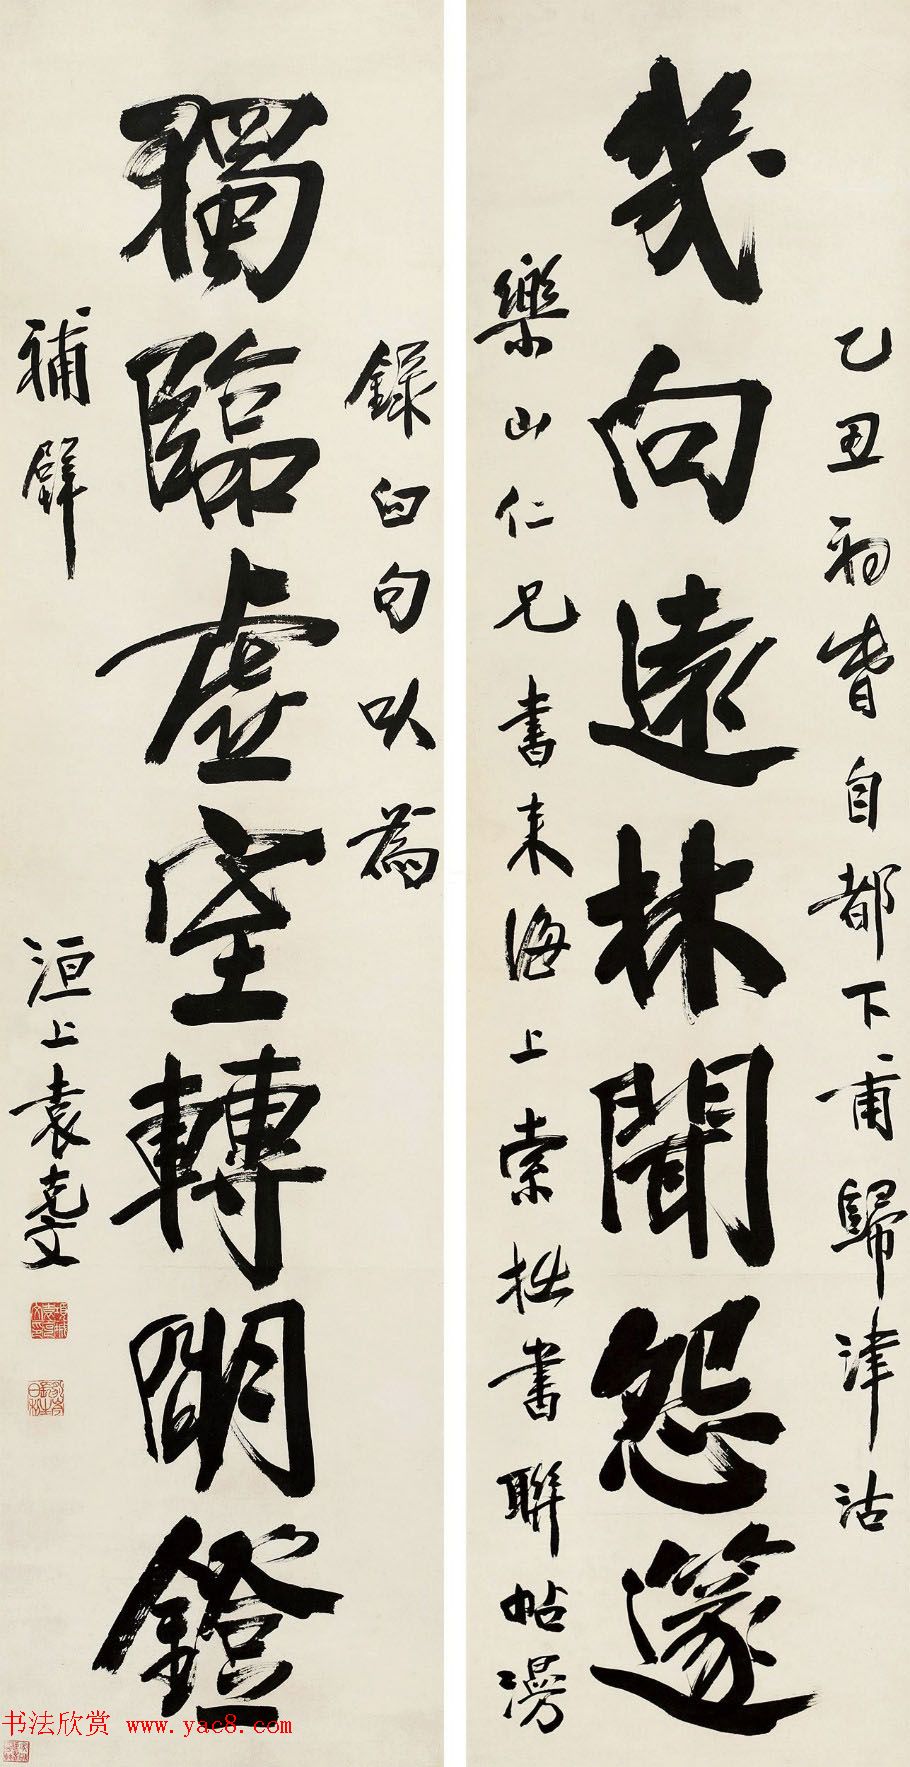 乙丑初春自都下甫歸津沽
幾向遠林聞怨籧
樂山仁兄書来海上索拙書聯帖漫
錄旧句以為
獨臨虛空轉明鐙
補壁
洹上袁克文
书法欣赏 www.yac8.com